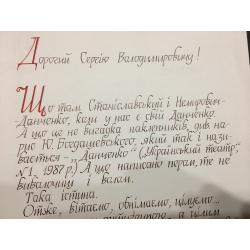 Дорогий Сергію Володимировичу!
Що там Станіславський і Немирович-
Данченко, коли у нас є свій Данченко.
А що це не вигадка наклепників, див. на-
рис Ю. Богдашевського, який так і нази-
вається – „Данченко" („Український театр"
№1, 1987 р.) А що написано пером, те не
вивалочиш і волом.
Така істина.
Отже, вітаємо, обнімаємо, цілуємо...
і цілим